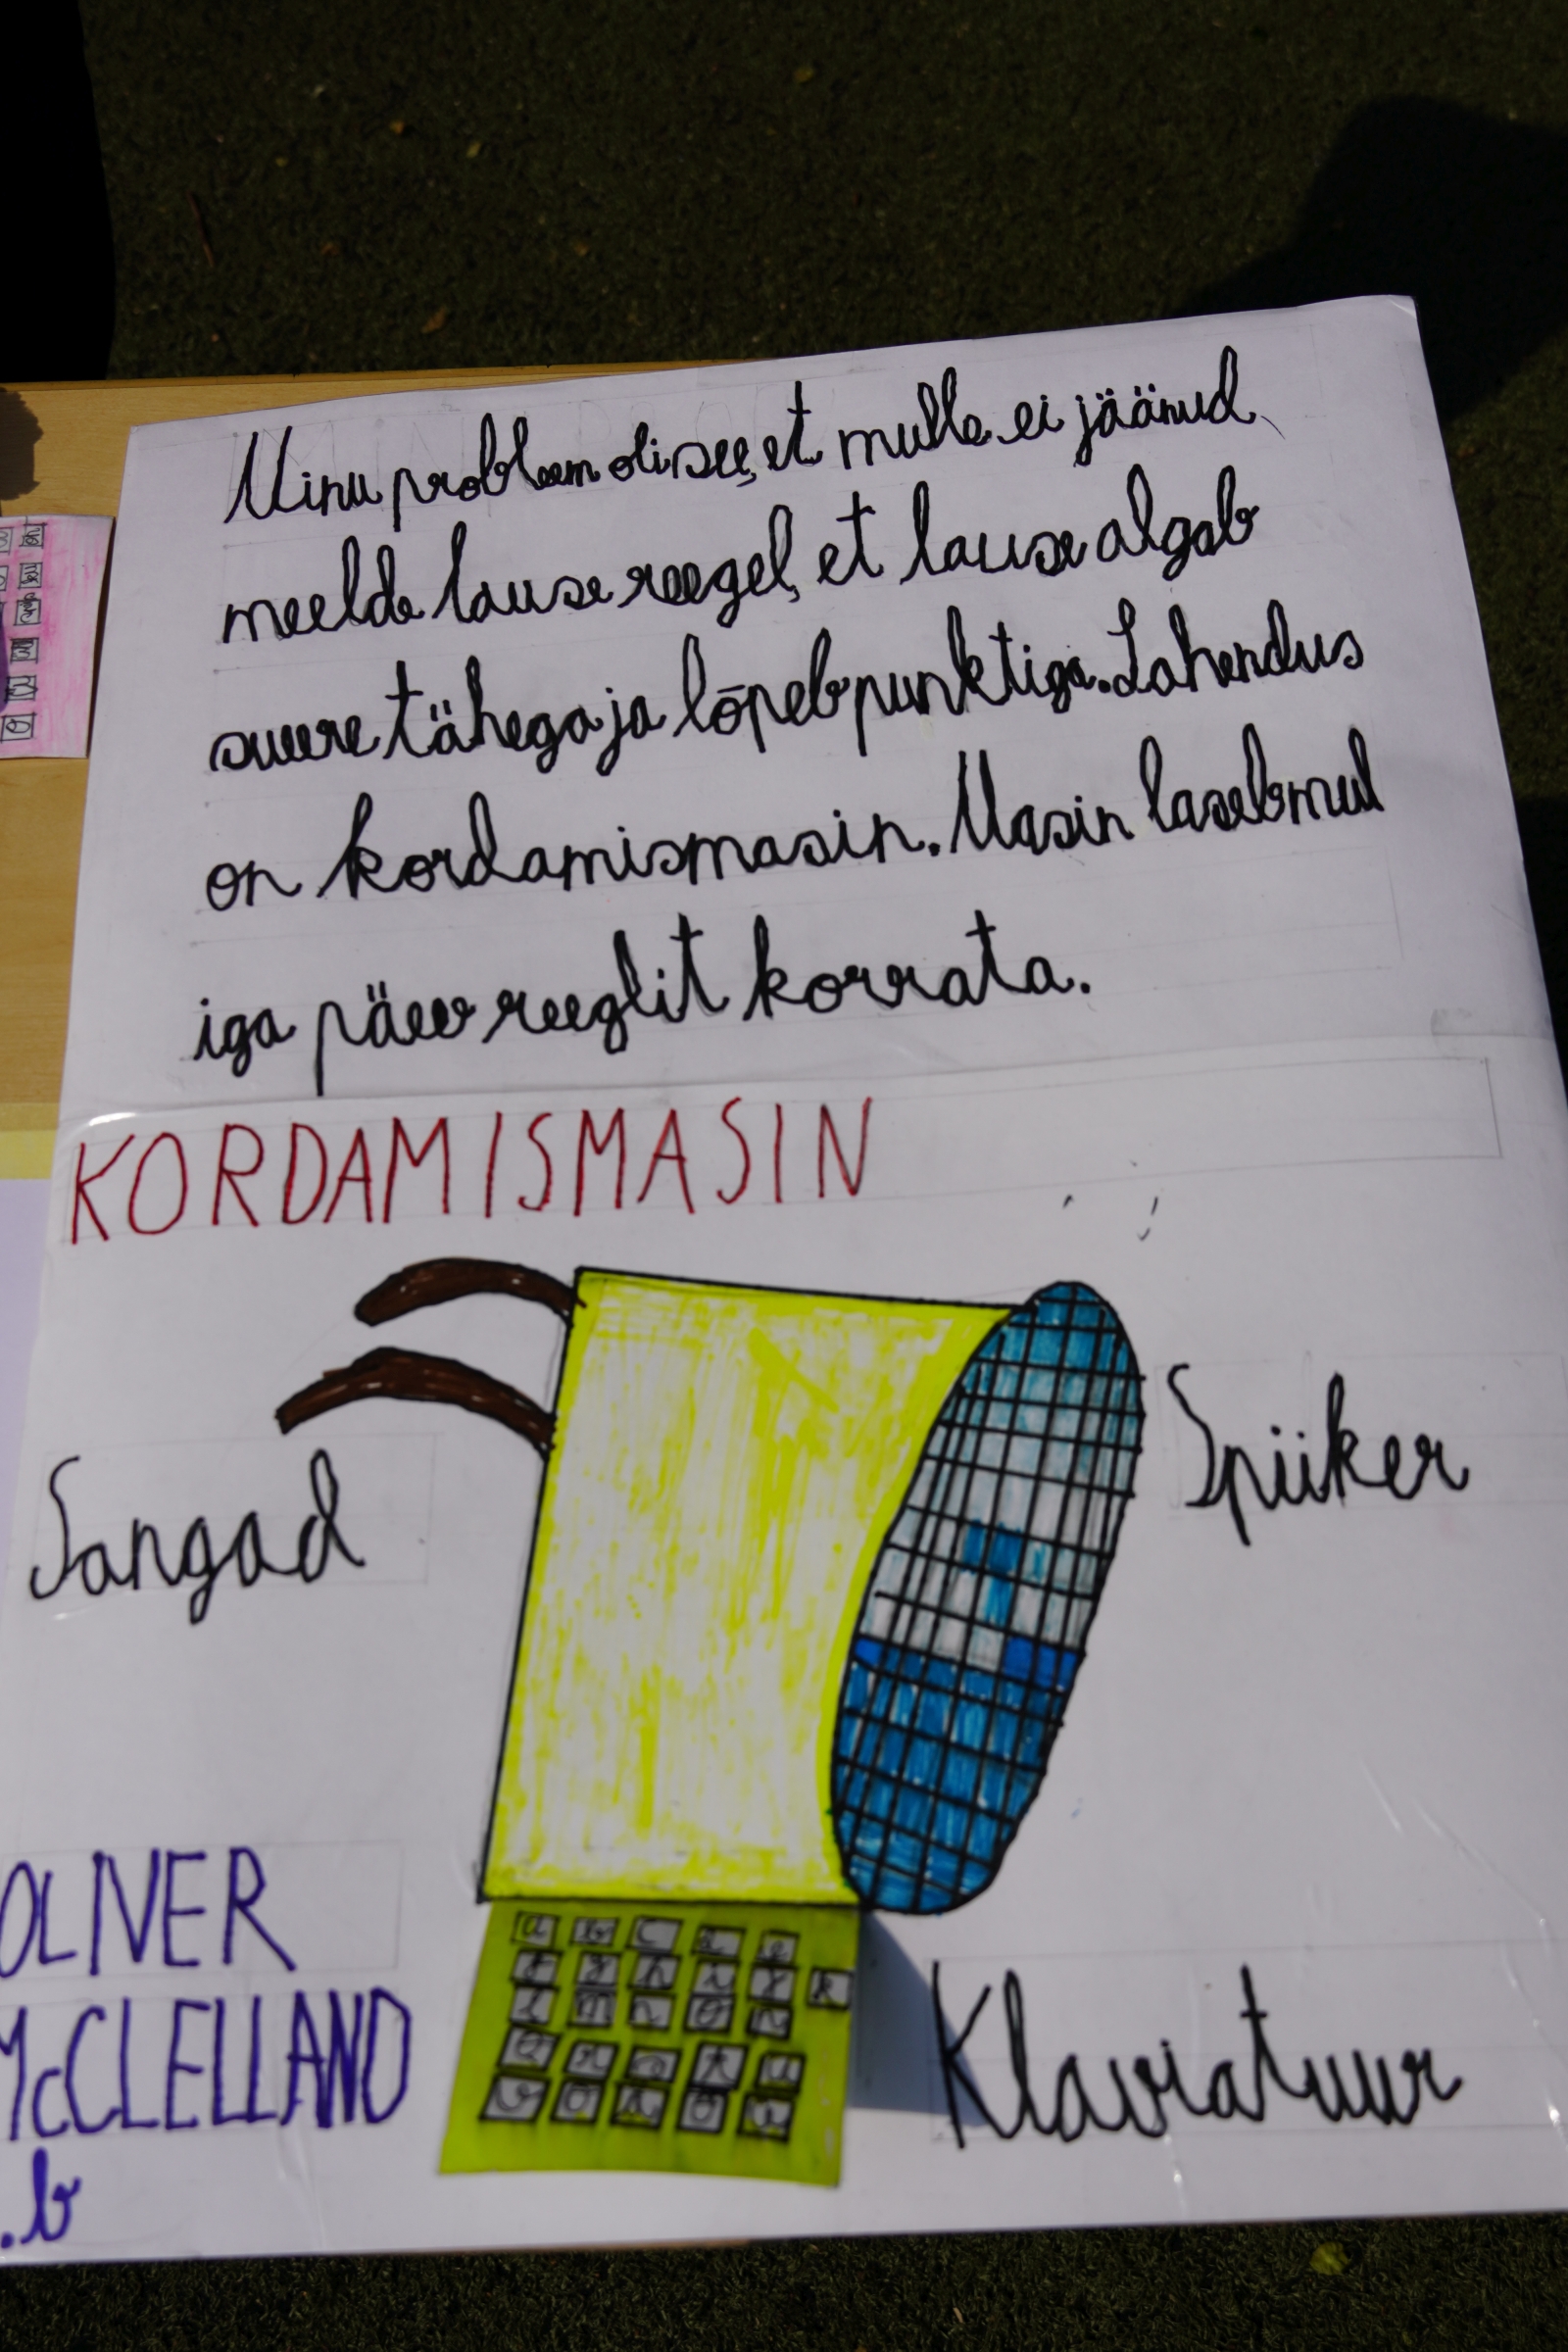 Minu probleem oli see, et mulle ei jäänud
meelde lause reegel, et lause algab
suure tähega ja lõpeb punktiga. Lahendus
on kordamismasin. Masin laseb mul
iga päev reeglit korrata.
KORDAMISMASIN
Sangad
Spiiker
OLIVER
McCLELLAND
.b
Klaviatuur
a b c d e
f g h i j k
l m n o p